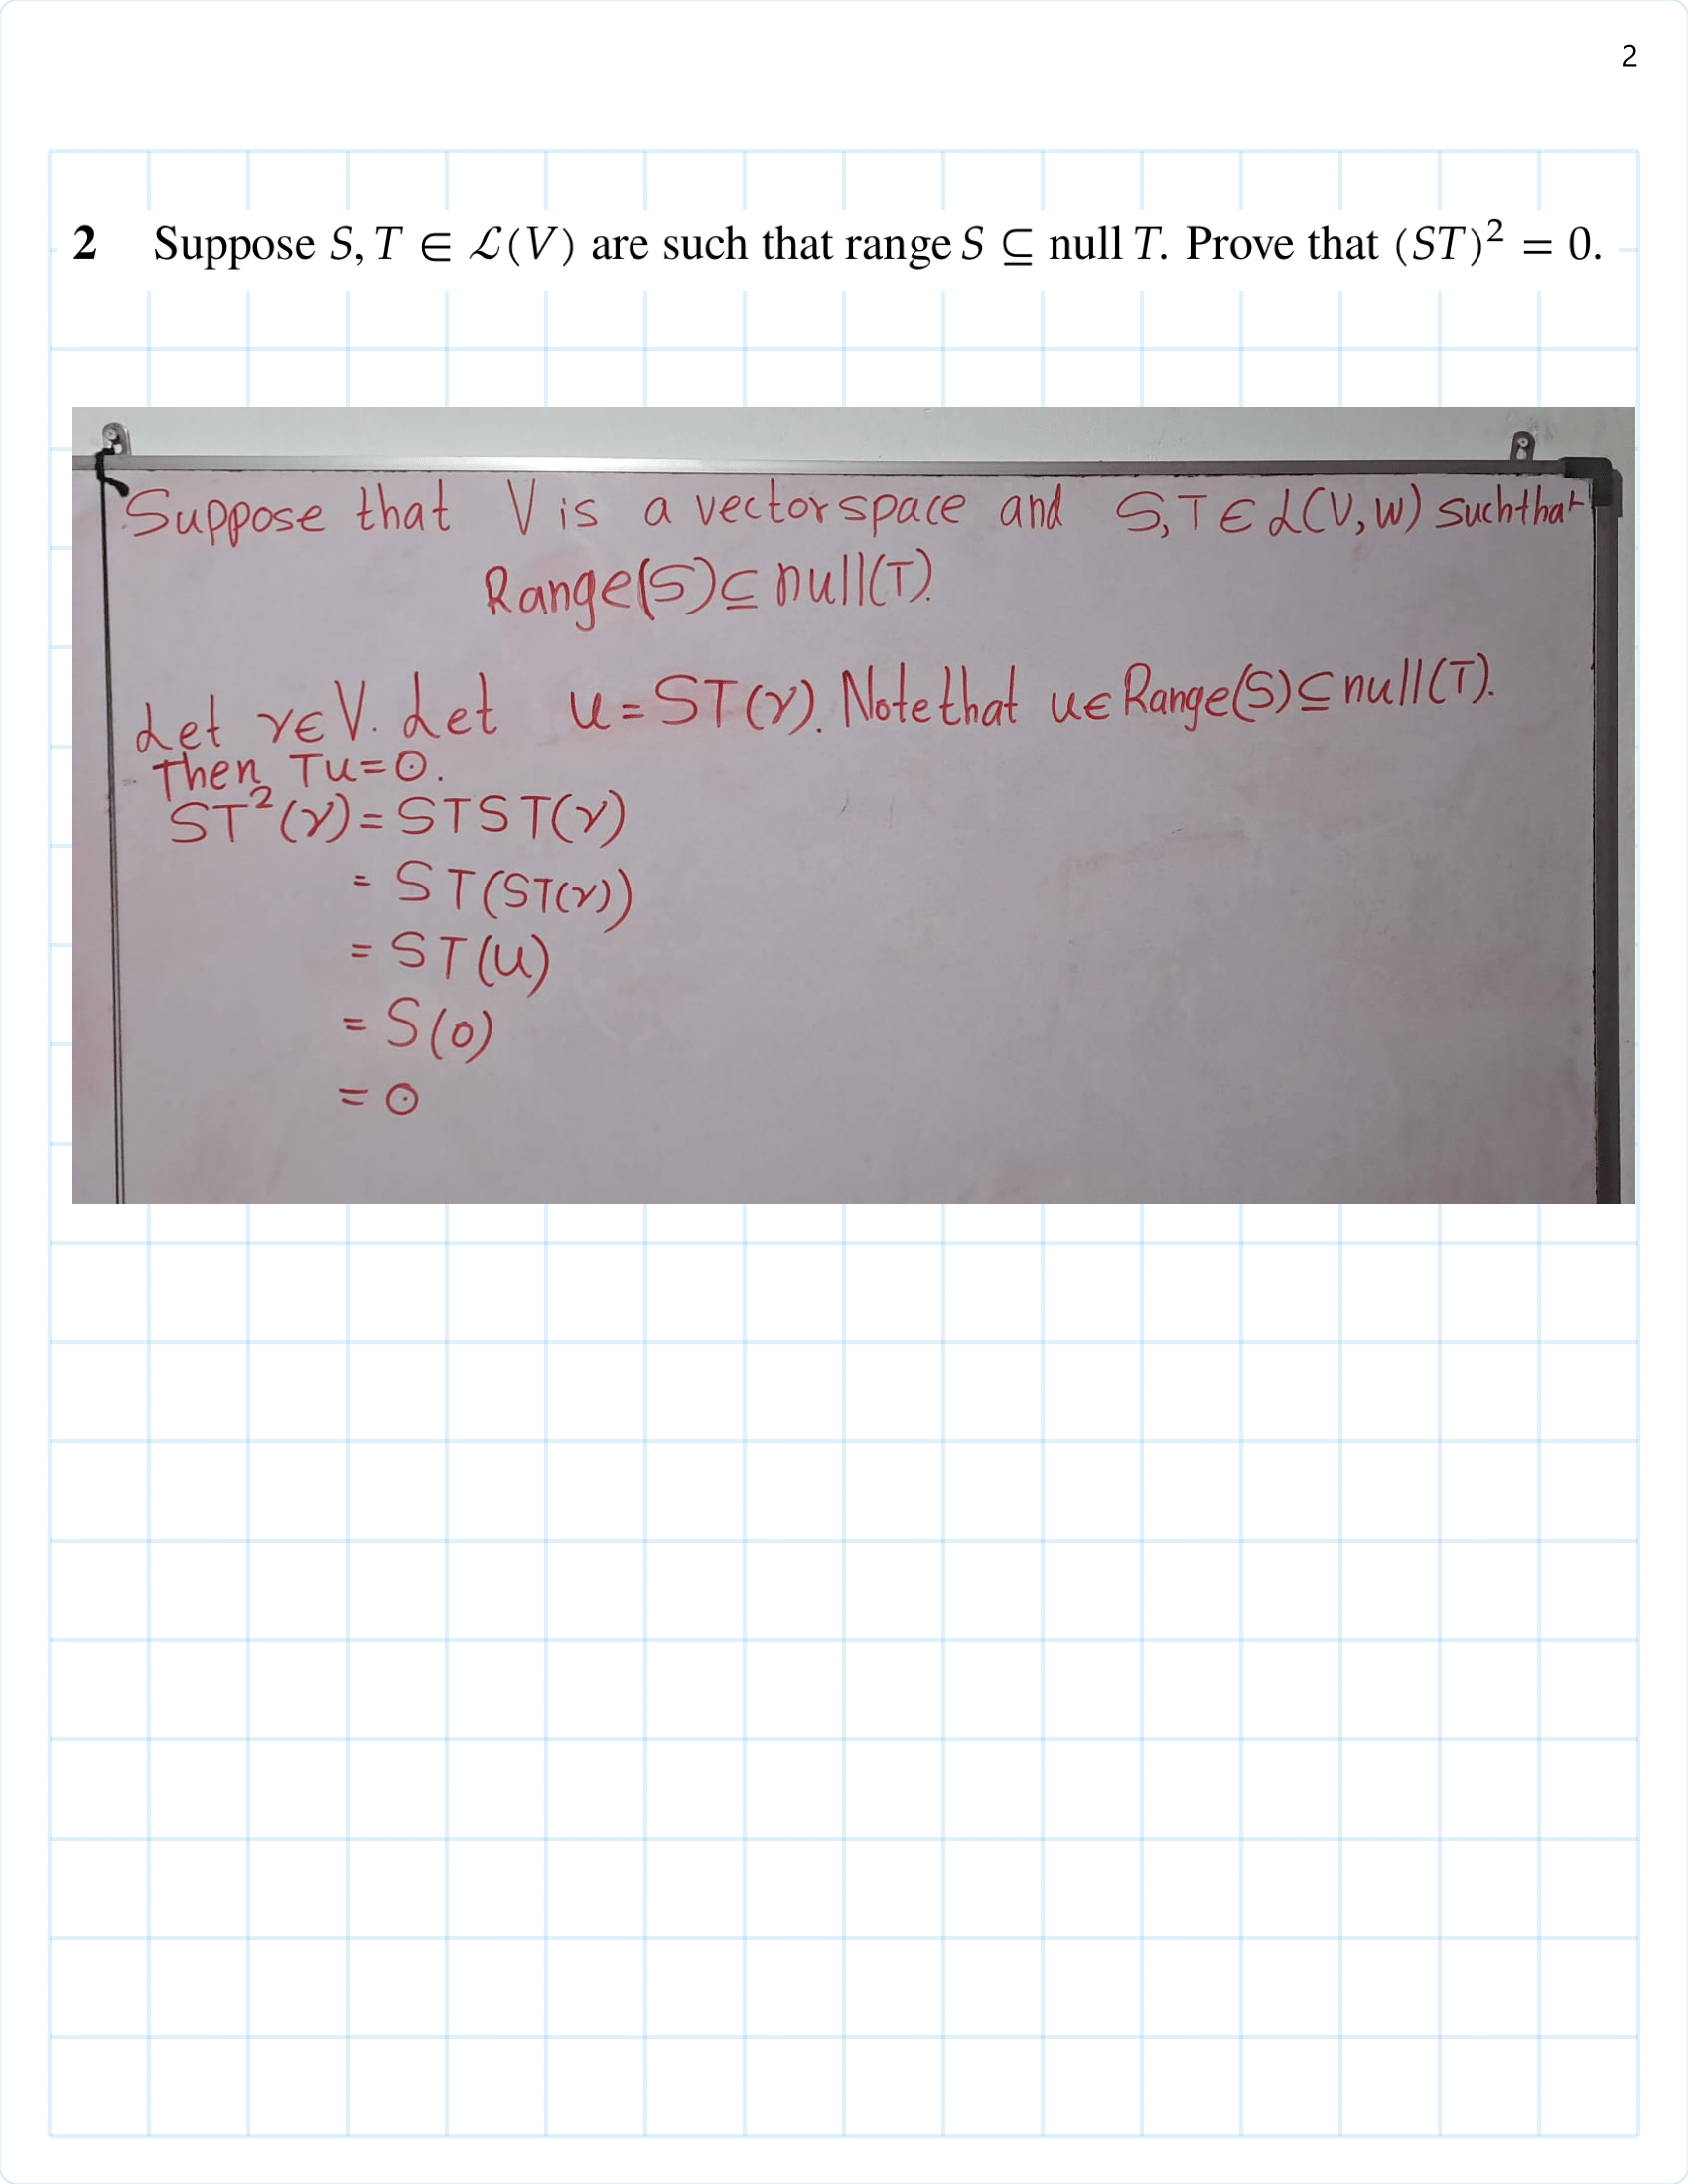 2
2 Suppose S, T ∈ ℒ(V) are such that range S ⊆ null T. Prove that (ST)² = 0.
Suppose that V is a vector space and S, T ∈ L(V, W) such that
Range(S) ⊆ null(T).
Let v ∈ V. Let u = ST(v). Note that u ∈ Range(S) ⊆ null(T).
Then, Tu = 0.
ST²(v) = STST(v)
= ST(ST(v))
= ST(u)
= S(0)
= 0